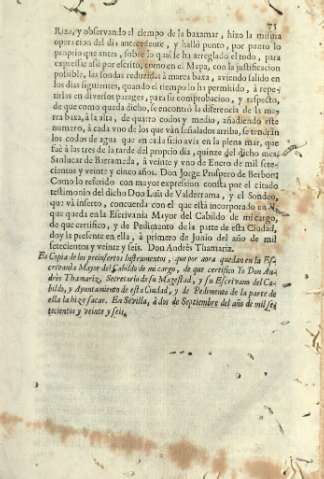 75
Riza, y observando el tiempo de la baxamar, hizo la misma
operacion del dia antecedente, y hallò punto, por punto lo
proprio que antes, sobre lo qual se ha arreglado el todo, para
expressarlo por escrito, como en el Mapa, con la justificacion
possible, las sondas reduzidas à marea baxa, aviendo salido en
los dias siguientes, quando el tiempo lo ha permitido, à repe-
tirlas en diversos parages, para su comprobacion, y respecto,
de que como queda dicho, se encontrò la diferencia de la ma-
rea baxa, à la alta, de quatro codos y medio, añadiendo este
numero, à cada vno de los que vàn señalados arriba, se tendràn
los codos de agua que en cada sitio avia en la plena mar, que
fuè à las tres de la tarde del proprio dia, quinze del dicho mes.
Sanlucar de Barrameda, à veinte y vno de Enero de mil sete-
cientos y veinte y cinco años. Don Jorge Prospero de Berbom.
Como lo referido con mayor expression consta por el citado
testimonio del dicho Don Luis de Valderrama, y el Sondeo,
que và inserto, concuerda con el que està incorporado en
que queda en la Escrivania Mayor del Cabildo de mi cargo,
de que certifico, y de Pedimento de la parte de esta Ciudad,
doy la presente en ella, à primero de Junio del año de mil
setecientos y veinte y seis. Don Andrès Thamariz.
Es Copia de los preinsertos Instrumentos, que por aora quedan en la Es-
crivania Mayor del Cabildo de mi cargo, de que certifico Yo Don An-
drès Thamariz, Secretario de su Magestad, y su Escrivano del Ca-
bildo, y Ayuntamiento de esta Ciudad, y de Pedimento de la parte de
ella la hize sacar. En Sevilla, à dos de Septiembre del año de mil se-
tecientos y veinte y seis.